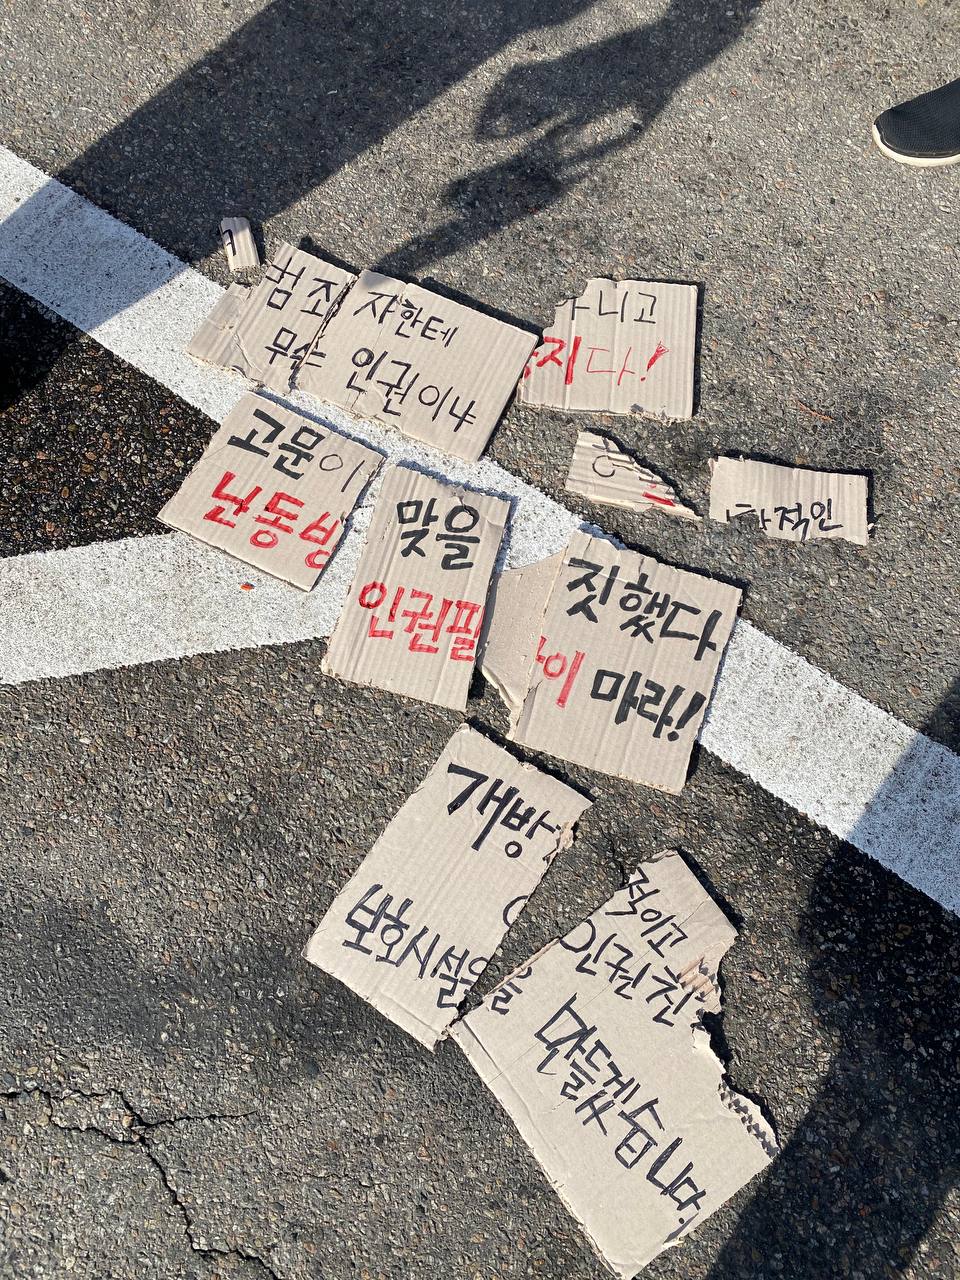 범죄자한테
무슨 인권이냐
니고
지다!
고문이
난동
적인
맞을
인권필
짓했다
이 마라!
개방
보호시설을
적이고
인권친
만들겠습니다